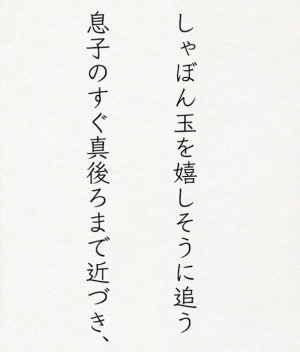 しゃぼん玉を嬉しそうに追う
息子のすぐ真後ろまで近づき、